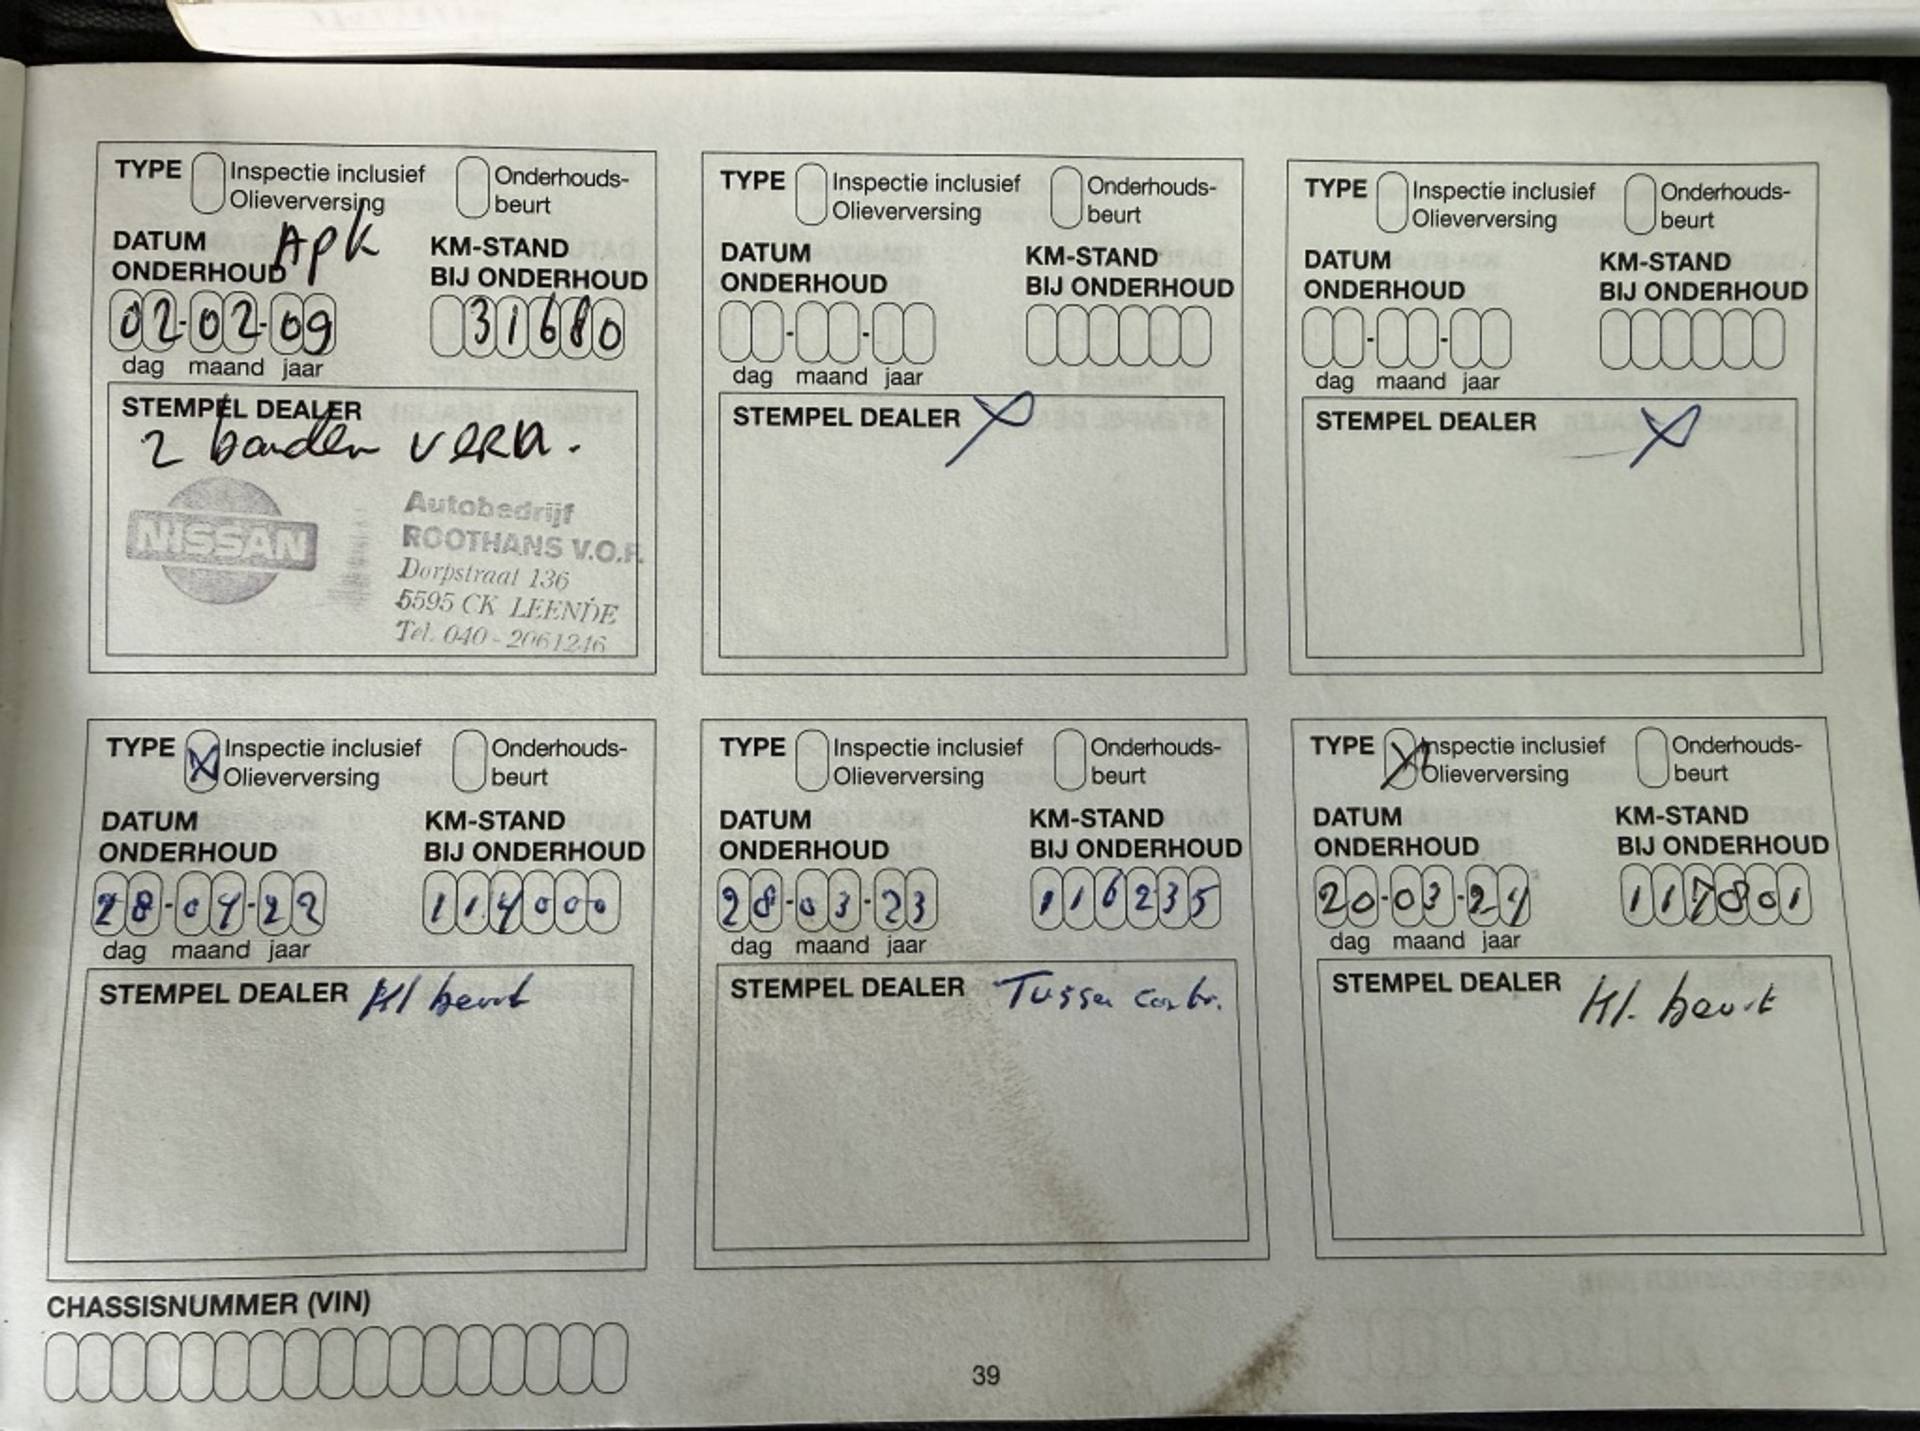 TYPE Inspectie inclusief Olieverversing Onderhouds-beurt
Apk
DATUM ONDERHOUD KM-STAND BIJ ONDERHOUD
02-02-09 31680
dag maand jaar
STEMPEL DEALER
2 banden vern.
NISSAN
Autobedrijf
ROOTHANS V.O.F.
Dorpstraat 136
5595 CK LEENDE
Tel. 040-2061246
TYPE Inspectie inclusief Olieverversing Onderhouds-beurt
DATUM ONDERHOUD KM-STAND BIJ ONDERHOUD
dag maand jaar
STEMPEL DEALER
TYPE Inspectie inclusief Olieverversing Onderhouds-beurt
DATUM ONDERHOUD KM-STAND BIJ ONDERHOUD
dag maand jaar
STEMPEL DEALER
TYPE X Inspectie inclusief Olieverversing Onderhouds-beurt
DATUM ONDERHOUD KM-STAND BIJ ONDERHOUD
28-04-22 114000
dag maand jaar
STEMPEL DEALER Kl beurt
TYPE Inspectie inclusief Olieverversing Onderhouds-beurt
DATUM ONDERHOUD KM-STAND BIJ ONDERHOUD
28-03-23 116235
dag maand jaar
STEMPEL DEALER Tussen contr.
TYPE X Inspectie inclusief Olieverversing Onderhouds-beurt
DATUM ONDERHOUD KM-STAND BIJ ONDERHOUD
20-03-24 117801
dag maand jaar
STEMPEL DEALER Kl. beurt
CHASSISNUMMER (VIN)
39